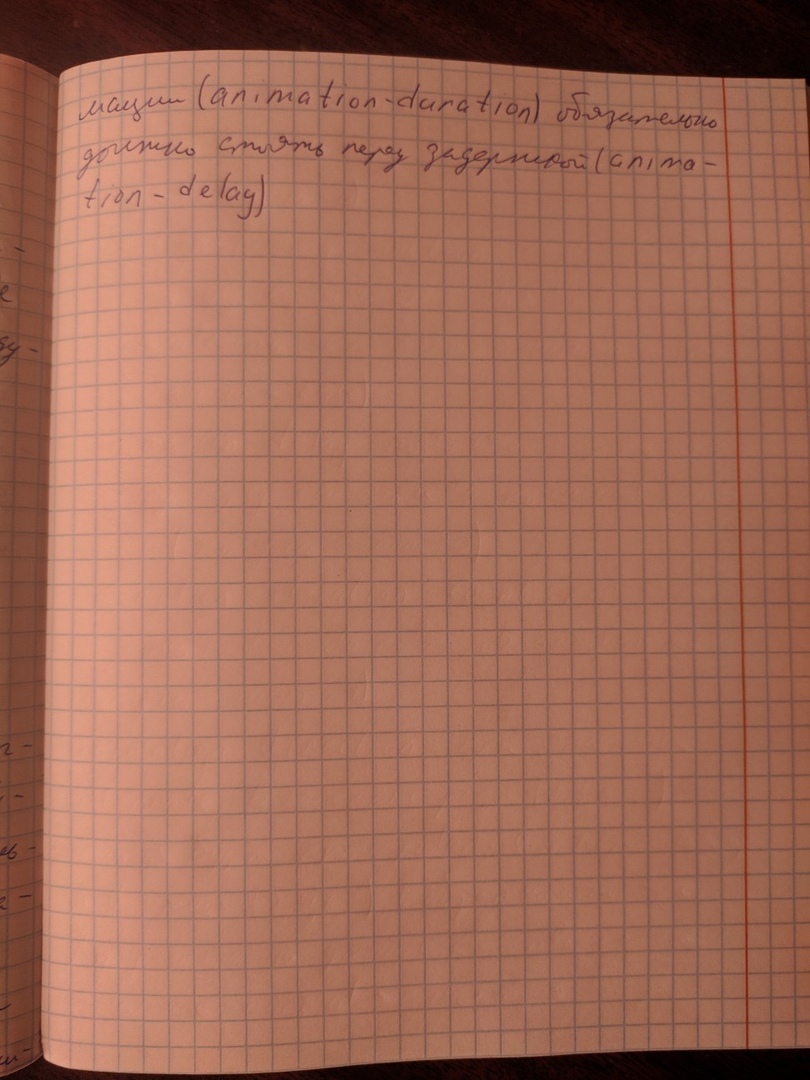 мации (animation-duration) обязательно
должно стоять перед задержкой (anima-
tion-delay)